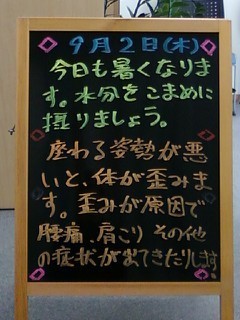 9月2日(木)
今日も暑くなりま
す。水分をこまめに
摂りましょう。
座わる姿勢が悪
いと、体が歪みま
す。歪みが原因で
腰痛、肩こり その他
の症状が出てきたりします。